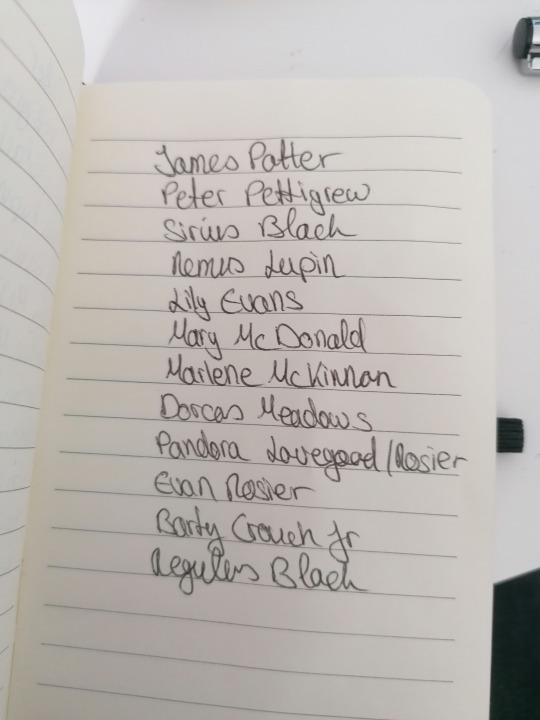 James Potter
Peter Pettigrew
Sirius Black
Remus Lupin
Lily Evans
Mary McDonald
Marlene McKinnon
Dorcas Meadows
Pandora Lovegood/Rosier
Evan Rosier
Barty Crouch Jr
Regulus Black